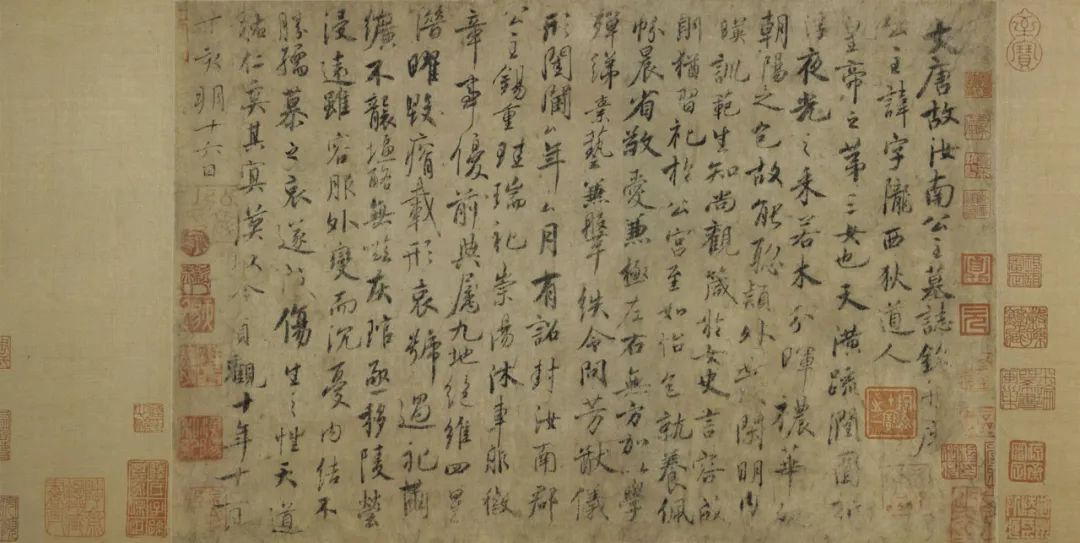 大唐故汝南公主墓誌銘并序
公主諱字隴西狄道人
皇帝之第三女也天潢疏潤圓折
浮夜光之采若木分暉穠華照
朝陽之色故能聡穎外發閑明内
暎訓範生知尚觀箴於女史言容成
則猶習礼於公宮至如怡色就養佩
帉晨省敬愛兼極左右無方加以學
殫綈素藝兼鞶紩令問芳猷儀
形閨閫厶年厶月有詔封汝南郡
公主錫重珪瑞礼崇湯沐車服徽
章事優前典屬九地絕維四星
潛曜毀瘠載形哀號過礼繭
纊不襲塩酪無嗞灰琯亟移陵塋
浸遠雖容服外變而沉憂内結不
勝孺慕之哀遂成傷生之性天道
祐仁奚其冥漠以今貞觀十年十一月
丁亥朔十六日